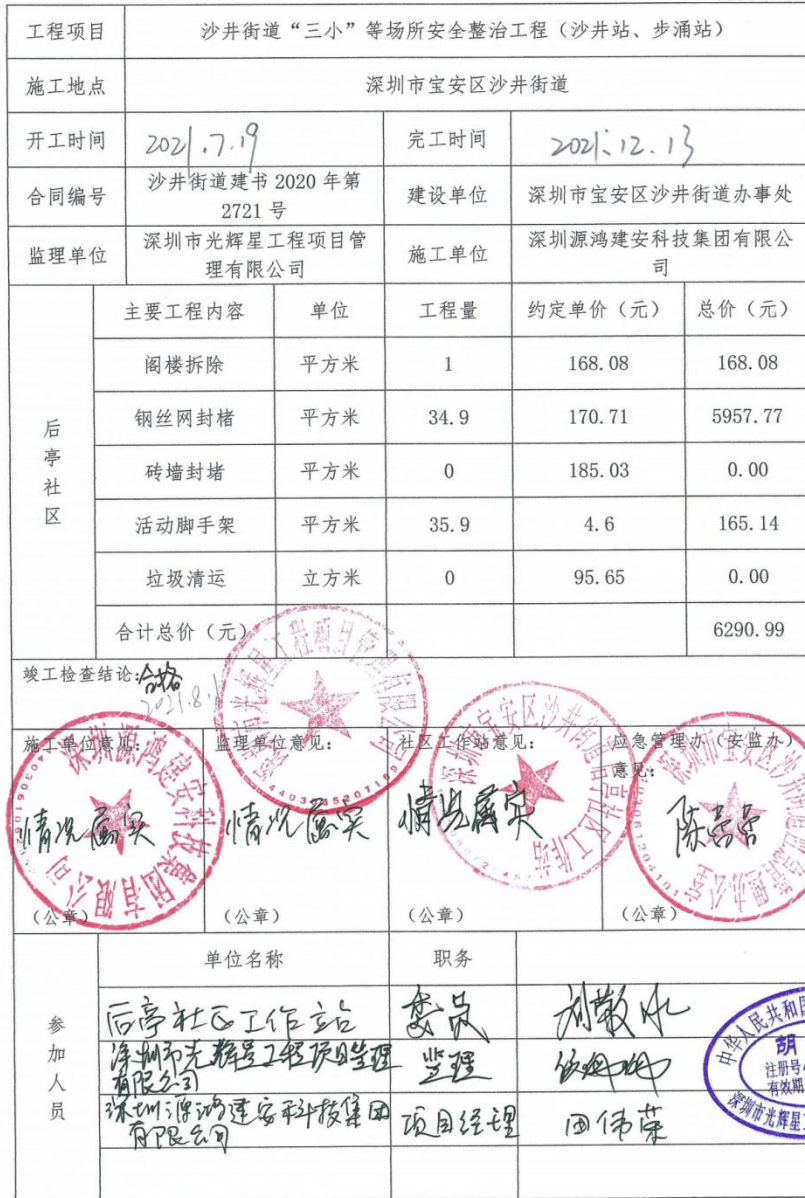 工程项目 沙井街道“三小”等场所安全整治工程（沙井站、步涌站）
施工地点 深圳市宝安区沙井街道
开工时间 2021.7.19 完工时间 2021.12.13
合同编号 沙井街道建书 2020 年第
2721 号
建设单位 深圳市宝安区沙井街道办事处
监理单位 深圳市光辉星工程项目管
理有限公司
施工单位 深圳源鸿建安科技集团有限公
司
后亭社区
主要工程内容 单位 工程量 约定单价（元） 总价（元）
阁楼拆除 平方米 1 168.08 168.08
钢丝网封楮 平方米 34.9 170.71 5957.77
砖墙封堵 平方米 0 185.03 0.00
活动脚手架 平方米 35.9 4.6 165.14
垃圾清运 立方米 0 95.65 0.00
合计总价（元） 6290.99
竣工检查结论:合格
2021.8.1
施工单位意见： 监理单位意见： 社区工作站意见： 应急管理办（安监办）
意见：
情况属实 情况属实 情况属实
（公章） （公章） （公章） （公章）
深圳源鸿建安科技集团有限公司
深圳市光辉星工程项目管理有限公司
深圳市宝安区沙井街道后亭社区工作站
参加人员
单位名称 职务
后亭社区工作站 委员
深圳市光辉星工程项目监理
有限公司
监理
深圳源鸿建安科技集团
有限公司
项目经理 田伟荣
中华人民共和国
胡
注册号
有效期
深圳市光辉星工